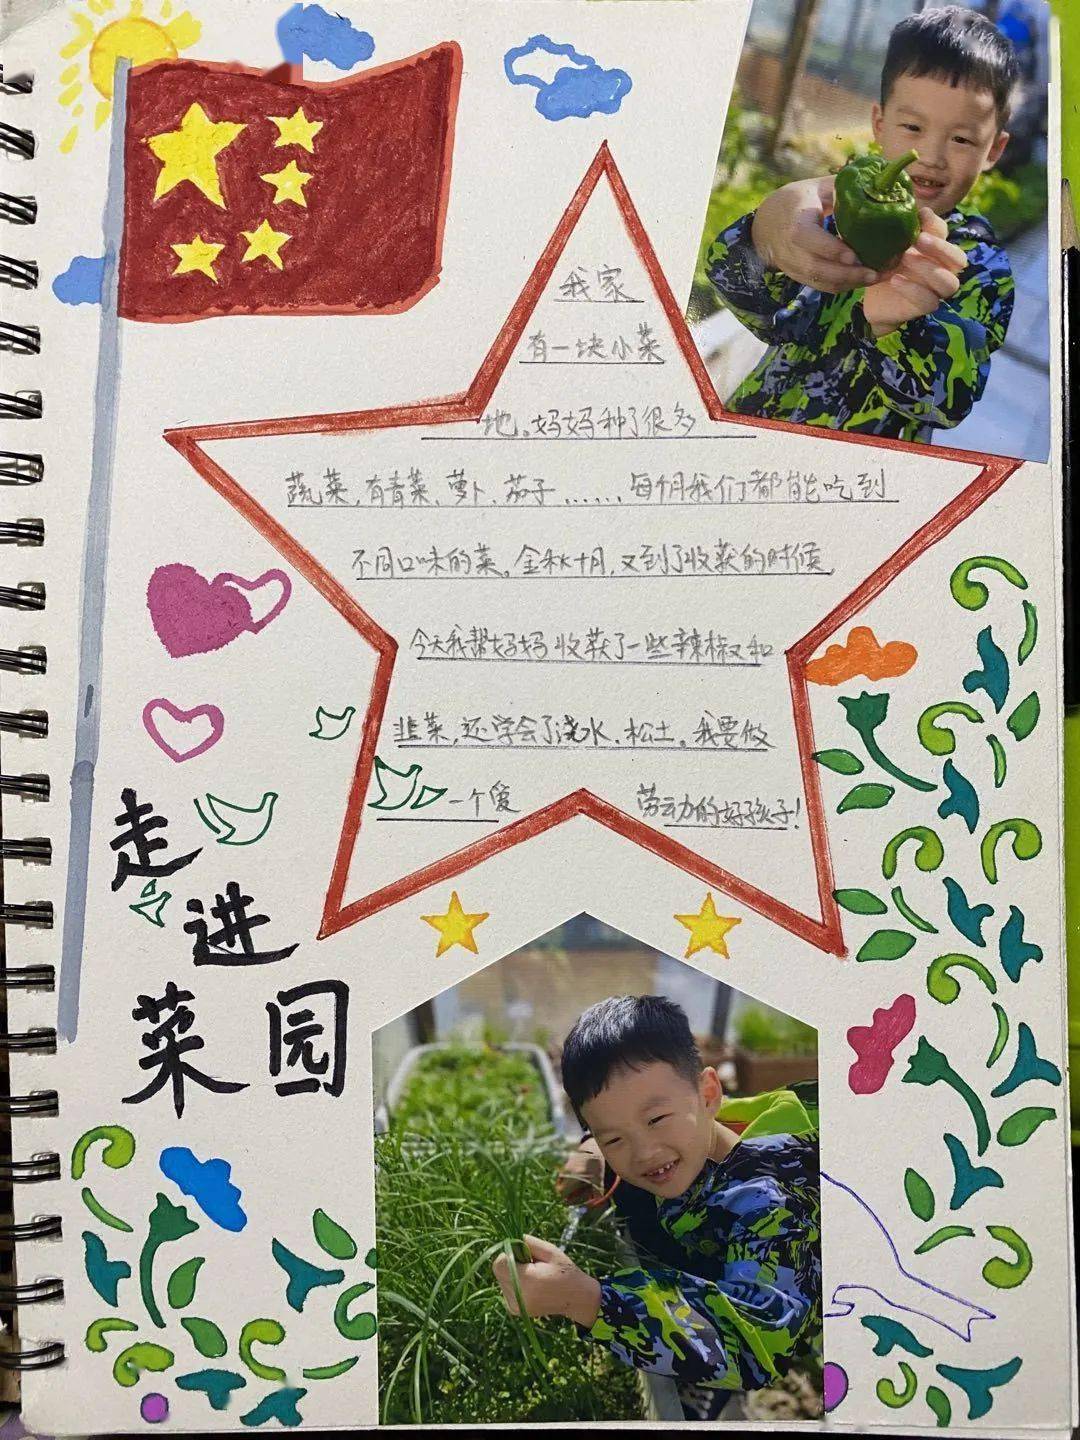 我家
有一块小菜
地。妈妈种了很多
蔬菜,有青菜、萝卜、茄子……,每个月我们都能吃到
不同口味的菜。金秋十月,又到了收获的时候,
今天我帮妈妈收获了一些辣椒和
韭菜,还学会了浇水、松土。我要做
一个爱劳动的好孩子!
走进
菜园